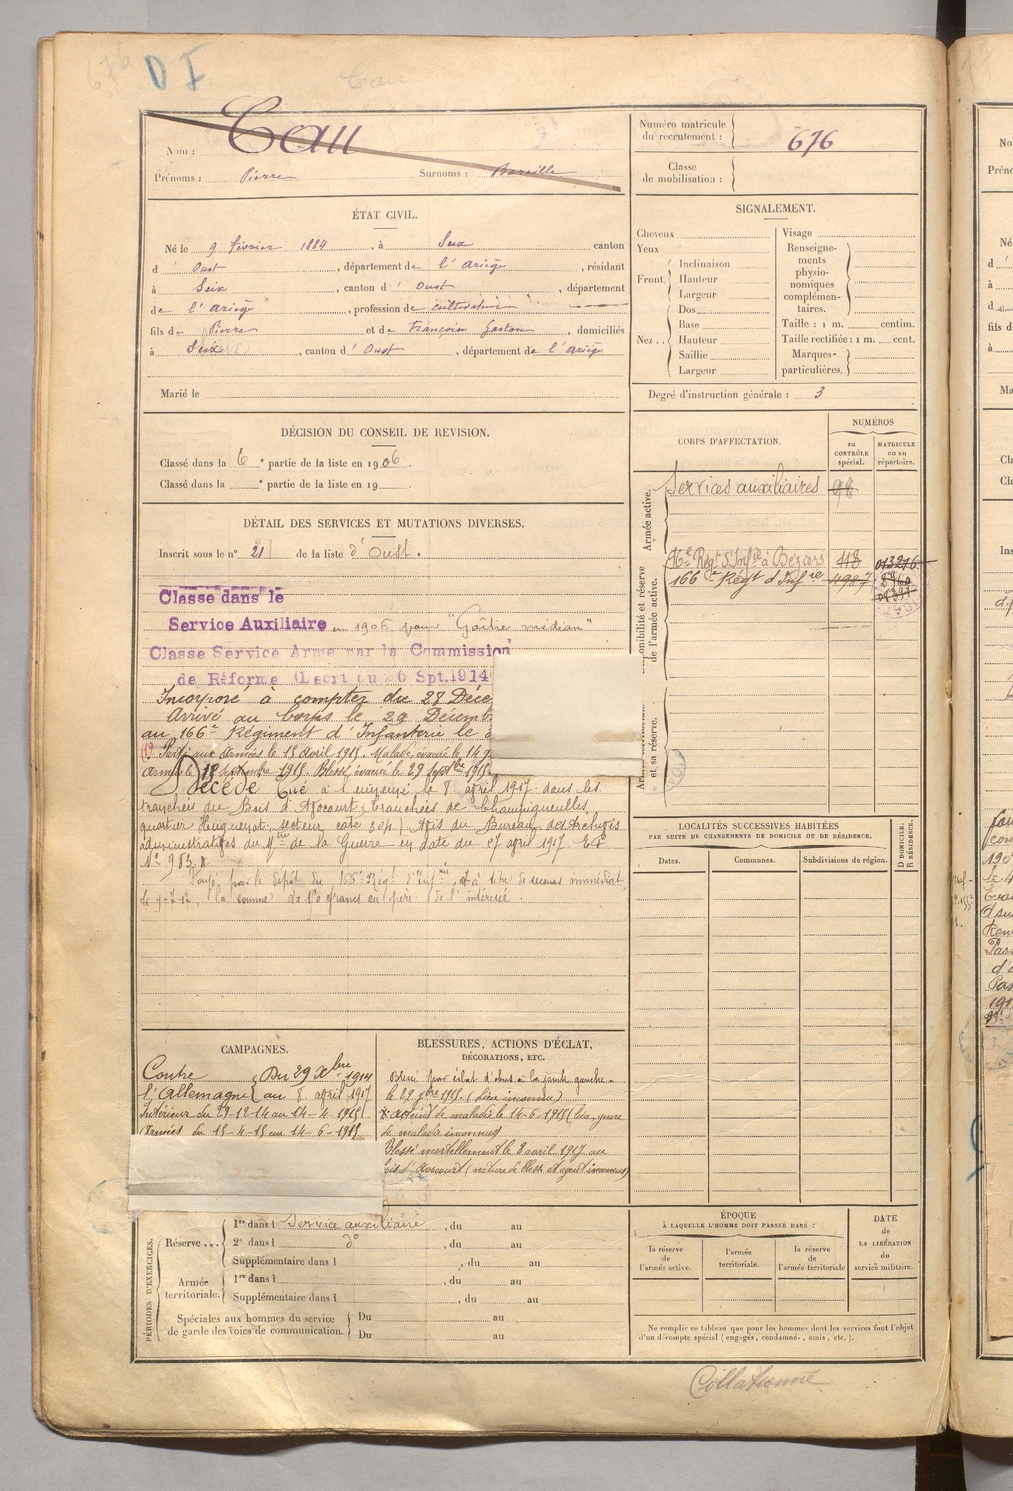 676
D I
Cau
Nom : Cau
Prénoms : Pierre Surnoms : Bareille
Numéro matricule du recrutement : 676
Classe de mobilisation :
ÉTAT CIVIL.
Né le 9 février 1884, à Seix canton
d' Oust, département de l'Ariège, résidant
à Seix, canton d' Oust, département
de l'Ariège, profession de cultivateur
fils de Pierre et de Françoise Gaston, domiciliés
à Seix, canton d' Oust, département de l'Ariège
Marié le
SIGNALEMENT.
Cheveux
Yeux
Front. Inclinaison
Hauteur
Largeur
Nez .. Dos
Base
Hauteur
Saillie
Largeur
Visage
Renseigne-
ments
physio-
nomiques
complémen-
taires.
Taille : 1 m. centim.
Taille rectifiée : 1 m. cent.
Marques
particulières.
Degré d'instruction générale : 3
DÉCISION DU CONSEIL DE REVISION.
Classé dans la 6e partie de la liste en 1906.
Classé dans la e partie de la liste en 19
CORPS D'AFFECTATION.
NUMÉROS
au CONTRÔLE spécial.
MATRICULE ou au répertoire.
Armée active.
Services auxiliaires 98
Régt d'Infie à Béziers 118
166e Régt d'Infie 4987
et sa réserve.
DÉTAIL DES SERVICES ET MUTATIONS DIVERSES.
Inscrit sous le n° 21 de la liste d'Oust.
Classé dans le
Service Auxiliaire en 1906 pour "Goître médian"
Classé Service Armé par la Commission
de Réforme (Décret du 26 Sept. 1914
Incorporé à compter du 28 Déce
Arrivé au Corps le 29 Décemb
au 166e Régiment d'Infanterie le
(1) Parti aux Armées le 15 Avril 1915. Malade, évacué le 14
Armées le 18 septembre 1915. Blessé, évacué le 29 septbre 1915
Décédé Tué à l'ennemi le 8 avril 1917 dans les
tranchées du Bois d'Avocourt (tranchées de Champigneulles,
quartier secteur cote 304) Avis du Bureau des Archives
administratives du Mre de la Guerre en date du 27 avril 1917
N° 983
par le dépôt du 166e Régt d'Infrie à titre de secours immédiat,
la somme de 150 francs au père de l'intéressé.
LOCALITÉS SUCCESSIVES HABITÉES
PAR SUITE DE CHANGEMENTS DE DOMICILE OU DE RÉSIDENCE.
Dates. Communes. Subdivisions de région.
D DOMICILE. R RÉSIDENCE.
CAMPAGNES.
Contre l'Allemagne Du 29 Xbre 1914
au 8 avril 1917
Intérieur du 29-12-14 au 14-4-1915
Armées du 15-4-15 au 14-6-1915
BLESSURES, ACTIONS D'ÉCLAT,
DÉCORATIONS, ETC.
Blessé par éclat d'obus à la jambe gauche
le 29 7bre 1915. (Lieu inconnu)
atteint de maladie le 14-6-1915 (lieu, genre
de maladie inconnus)
Blessé mortellement le 8 avril 1917 au
bois d'Avocourt (nature de bless. et agent inconnus)
PÉRIODES D'EXERCICES.
Réserve ... 1re dans l Service auxiliaire, du au
2e dans l d°, du au
Supplémentaire dans l , du au
Armée territoriale. 1re dans l , du au
Supplémentaire dans l , du au
Spéciales aux hommes du service
de garde des voies de communication. Du au
Du au
ÉPOQUE
À LAQUELLE L'HOMME DOIT PASSER DANS :
la réserve de l'armée active.
l'armée territoriale.
la réserve de l'armée territoriale
DATE de LA LIBÉRATION du service militaire.
Ne remplir ce tableau que pour les hommes dont les services font l'objet
d'un décompte spécial (engagés, condamnés, omis, etc.).
Collationné